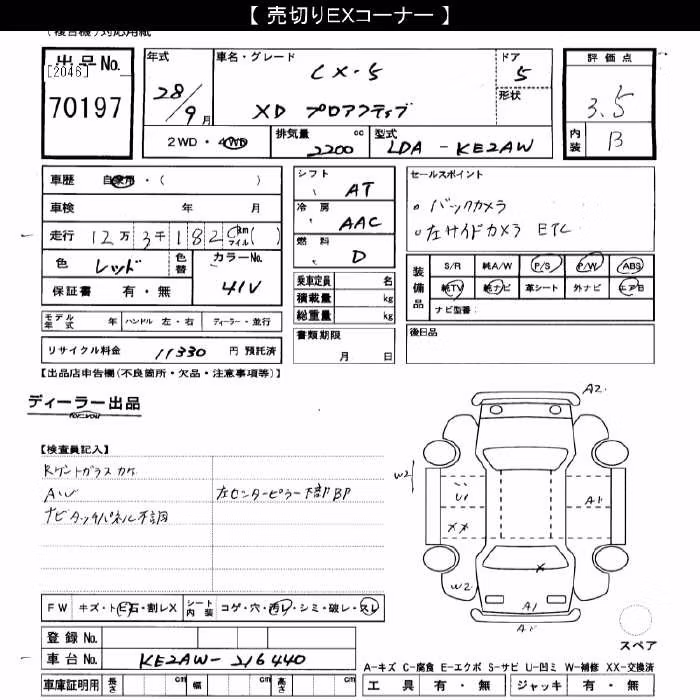 【 売切りEXコーナー 】
(複合機)対応用紙
出品No.
[2046]
70197
年式
28/9月
車名・グレード
CX-5
XD プロアクティブ
ドア
5
形状
評価点
3.5
内装
B
2WD・4WD
排気量
2200 cc
型式
LDA - KE2AW
車歴 自家用・( )
車検 年 月
走行 12万3千182 Km マイル( )
色 レッド
色替
カラーNo.
41V
保証書 有・無
モデル年式 年
ハンドル 左・右
ディーラー・並行
リサイクル料金 11330 円 預託済
シフト
AT
冷房
AAC
燃料
D
乗車定員 名
積載量 kg
総重量 kg
書類期限
月 日
セールスポイント
。バックカメラ
。左サイドカメラ ETC
装備品
S/R 純A/W P/S P/W ABS
純TV 純ナビ 革シート 外ナビ エアB
ナビ型番:
後日品
【出品店申告欄(不良箇所・欠品・注意事項等)】
ディーラー出品
【検査員記入】
Rフロントガラスカケ
AW
左センターピラー下部BP
ナビタッチパネル不調
FW キズ・トビ石・割レX
シート内装 コゲ・穴・汚レ・シミ・破レ・スレ
登録No.
車台No. KE2AW-216440
車庫証明用 長さ cm 幅 cm 高さ cm
A2
W2
U1
A1
XX
X
W2
A1
A1
スペア
A-キズ C-腐食 E-エクボ S-サビ U-凹ミ W-補修 XX-交換済
工具 有・無 ジャッキ 有・無